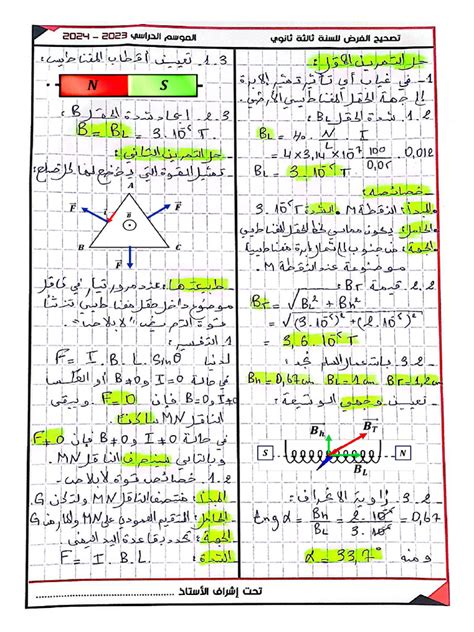 تصحيح الفرض للسنة ثالثة ثانوي
الموسم الدراسي 2023 - 2024
حل التمرين الأول:
1- في غياب أي تأثير تشير الإبرة
إلى جهة الحقل المغناطيسي الأرضي.
1.2. شدة الحقل BL:
BL = 4π . N I
= 4×3,14×10⁻⁷ 100/0,05 . 0,012
BL = 3.10⁻⁵ T
خصائصه:
المبدأ: النقطة M. الشدة 3.10⁻⁵ T
الحامل: يكون مماسي لخط الحقل المغناطيسي
الجهة: من جنوب إلى شمال إبرة مغناطيسية
موضوعة عند النقطة M.
2.2. قيمة BT:
BT = √BL² + Bh²
= √(3.10⁻⁵)² + (2.10⁻⁵)²
= 3,6.10⁻⁵ T
3.2. باستعمال السلم نجد:
Bh = 0,67cm BL = 1cm BT = 1,2cm
- تعيين وجهي الوشيعة:
Bh BT
S N
BL
3.2. زاوية الانحراف:
tengα = Bh/BL = 2.10⁻⁵/3.10⁻⁵ = 0,67
ومنه α = 33,7°
1.3. تعيين أقطاب المغناطيس:
N S
2.3. إيجاد شدة الحقل B:
B = BL = 3.10⁻⁵ T.
حل التمرين الثاني:
- تمثيل القوة التي يخضع لها كل ضلع:
A
F F
I B
B C
F
- طبيعتها: عند مرور تيار في ناقل
موضوع داخل حقل مغناطيسي تنشأ
قوة كهرومغناطيسية "لابلاص".
1- التفسير:
لدينا F = I . B . L . Sinθ
في حالة I=0 و B≠0 أو العكس
I≠0 و B=0 فإن F=0 ويبقى
الناقل MN ساكنا
في حالة I≠0 و B≠0 فإن F≠0
وبالتالي ينحرف الناقل MN.
1.2. خصائص قوة لابلاص:
المبدأ: منتصف الناقل MN ولتكن G
الحامل: المستقيم العمودي على MN والمار من G
الجهة: تحدد بقاعدة اليد اليمنى
الشدة: F = I . B . L.
تحت إشراف الأستاذ